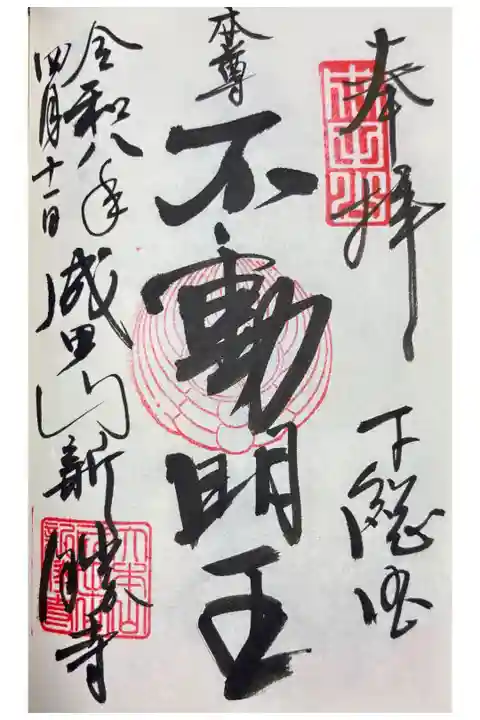 奉拝
下総国
成田山
本尊
不動明王
令和八年
四月十一日
成田山新勝寺